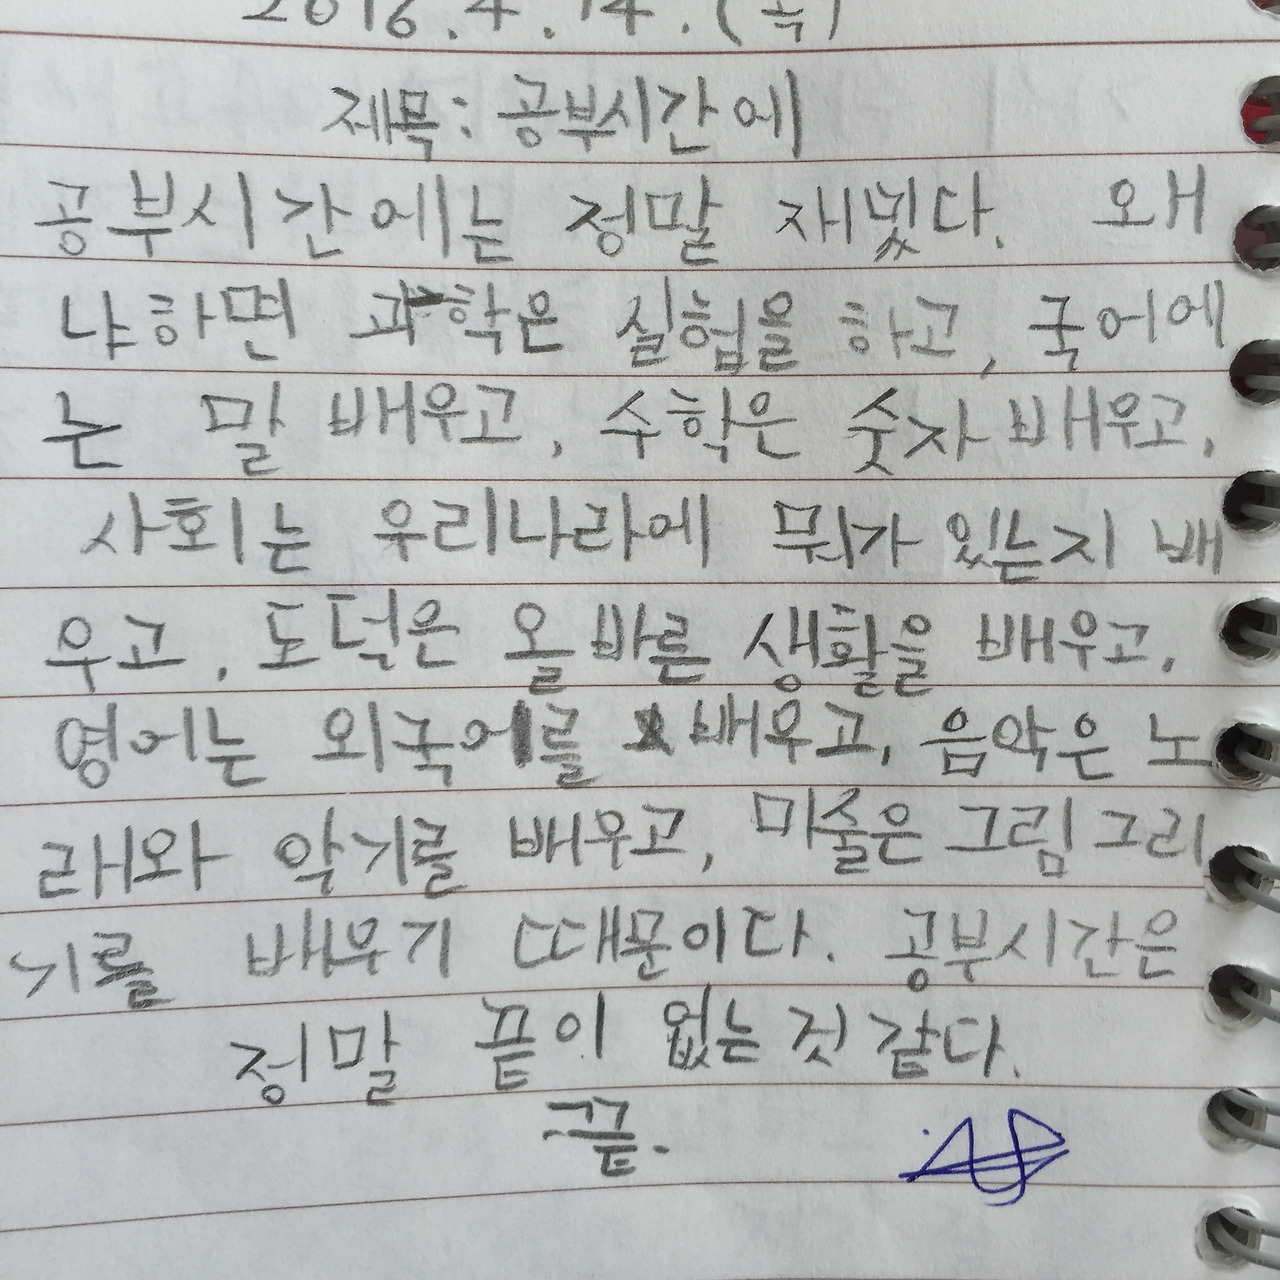 2016.4.14.(목)
제목:공부시간에
공부시간에는 정말 재밌다. 왜
냐하면 과학은 실험을 하고, 국어에
는 말 배우고, 수학은 숫자 배우고,
사회는 우리나라에 뭐가 있는지 배
우고, 도덕은 올바른 생활을 배우고,
영어는 외국어를 배우고, 음악은 노
래와 악기를 배우고, 미술은 그림 그리
기를 배우기 때문이다. 공부시간은
정말 끝이 없는 것 같다.
끝.